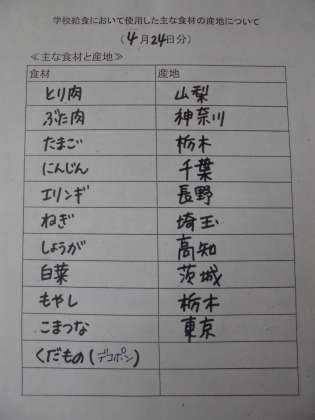 学校給食において使用した主な食材の産地について
(4月24日分)
≪主な食材と産地≫
食材 産地
とり肉 山梨
ぶた肉 神奈川
たまご 栃木
にんじん 千葉
エリンギ 長野
ねぎ 埼玉
しょうが 高知
白菜 茨城
もやし 栃木
こまつな 東京
くだもの(デコポン)